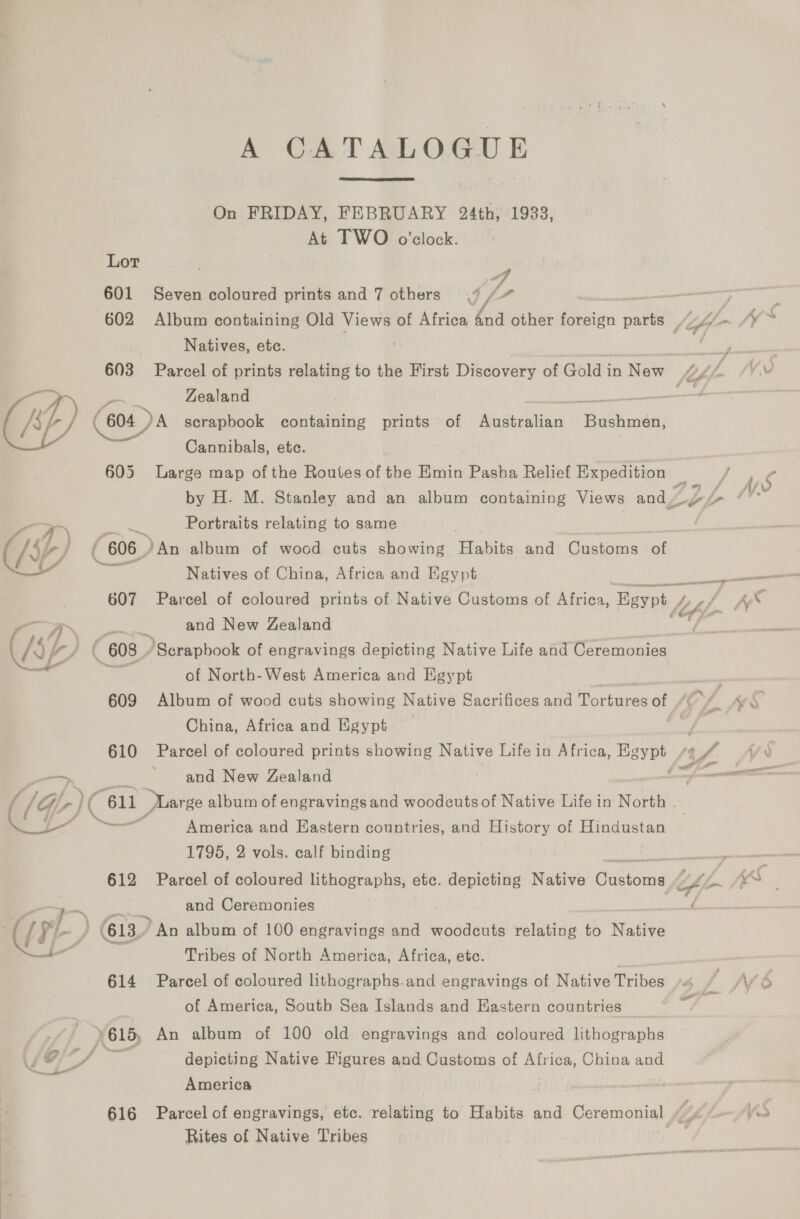 A CATALOGUE
On FRIDAY, FEBRUARY 24th, 1933,
At TWO o'clock.
Lot
601 Seven coloured prints and 7 others
602 Album containing Old Views of Africa and other foreign parts
Natives, etc.
603 Parcel of prints relating to the First Discovery of Gold in New
Zealand
604 A scrapbook containing prints of Australian Bushmen,
Cannibals, etc.
605 Large map of the Routes of the Emin Pasha Relief Expedition
by H. M. Stanley and an album containing Views and
Portraits relating to same
606 An album of wood cuts showing Habits and Customs of
Natives of China, Africa and Egypt
607 Parcel of coloured prints of Native Customs of Africa, Egypt
and New Zealand
608 Scrapbook of engravings depicting Native Life and Ceremonies
of North-West America and Egypt
609 Album of wood cuts showing Native Sacrifices and Tortures of
China, Africa and Egypt
610 Parcel of coloured prints showing Native Life in Africa, Egypt
and New Zealand
611 Large album of engravings and woodcuts of Native Life in North
America and Eastern countries, and History of Hindustan
1795, 2 vols. calf binding
612 Parcel of coloured lithographs, etc. depicting Native Customs
and Ceremonies
613 An album of 100 engravings and woodcuts relating to Native
Tribes of North America, Africa, etc.
614 Parcel of coloured lithographs and engravings of Native Tribes
of America, South Sea Islands and Eastern countries
615 An album of 100 old engravings and coloured lithographs
depicting Native Figures and Customs of Africa, China and
America
616 Parcel of engravings, etc. relating to Habits and Ceremonial
Rites of Native Tribes